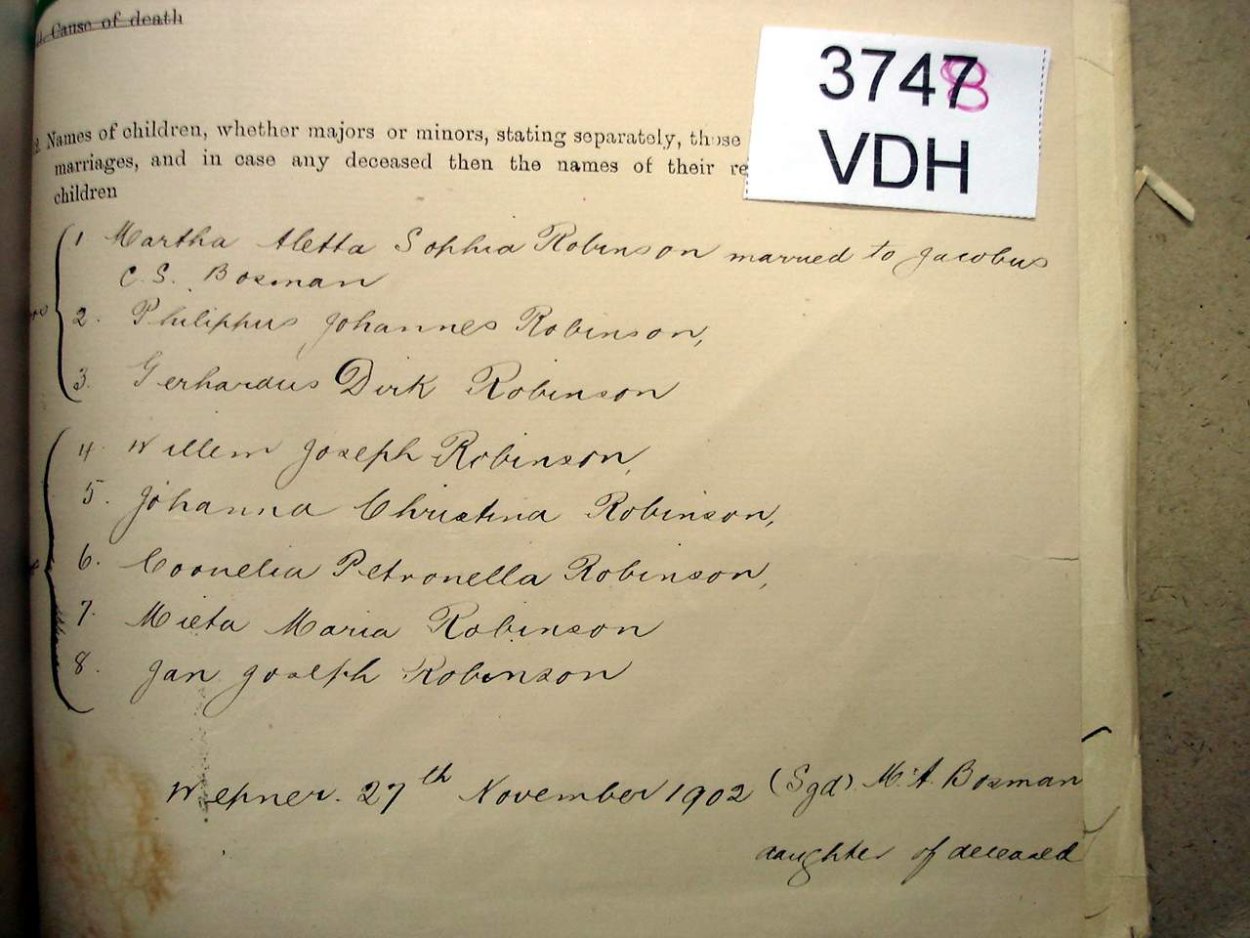 Cause of death
3747 8
VDH
Names of children, whether majors or minors, stating separately, those
marriages, and in case any deceased then the names of their re
children
1 Martha Aletta Sophia Robinson married to Jacobus
C. S. Bosman
2. Philippus Johannes Robinson,
3. Gerhardus Dirk Robinson
4. Willem Joseph Robinson,
5. Johanna Christina Robinson,
6. Cornelia Petronella Robinson,
7. Mieta Maria Robinson
8. Jan Joseph Robinson
Wepner. 27th November 1902 (Sgd) M. A. Bosman
daughter of deceased